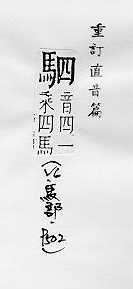 重訂直音篇
駟
音四一
乘四馬
(VI·馬部·